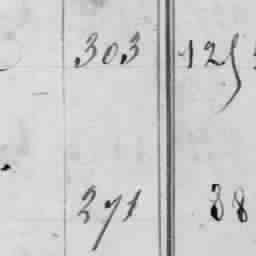 303 125
271 38